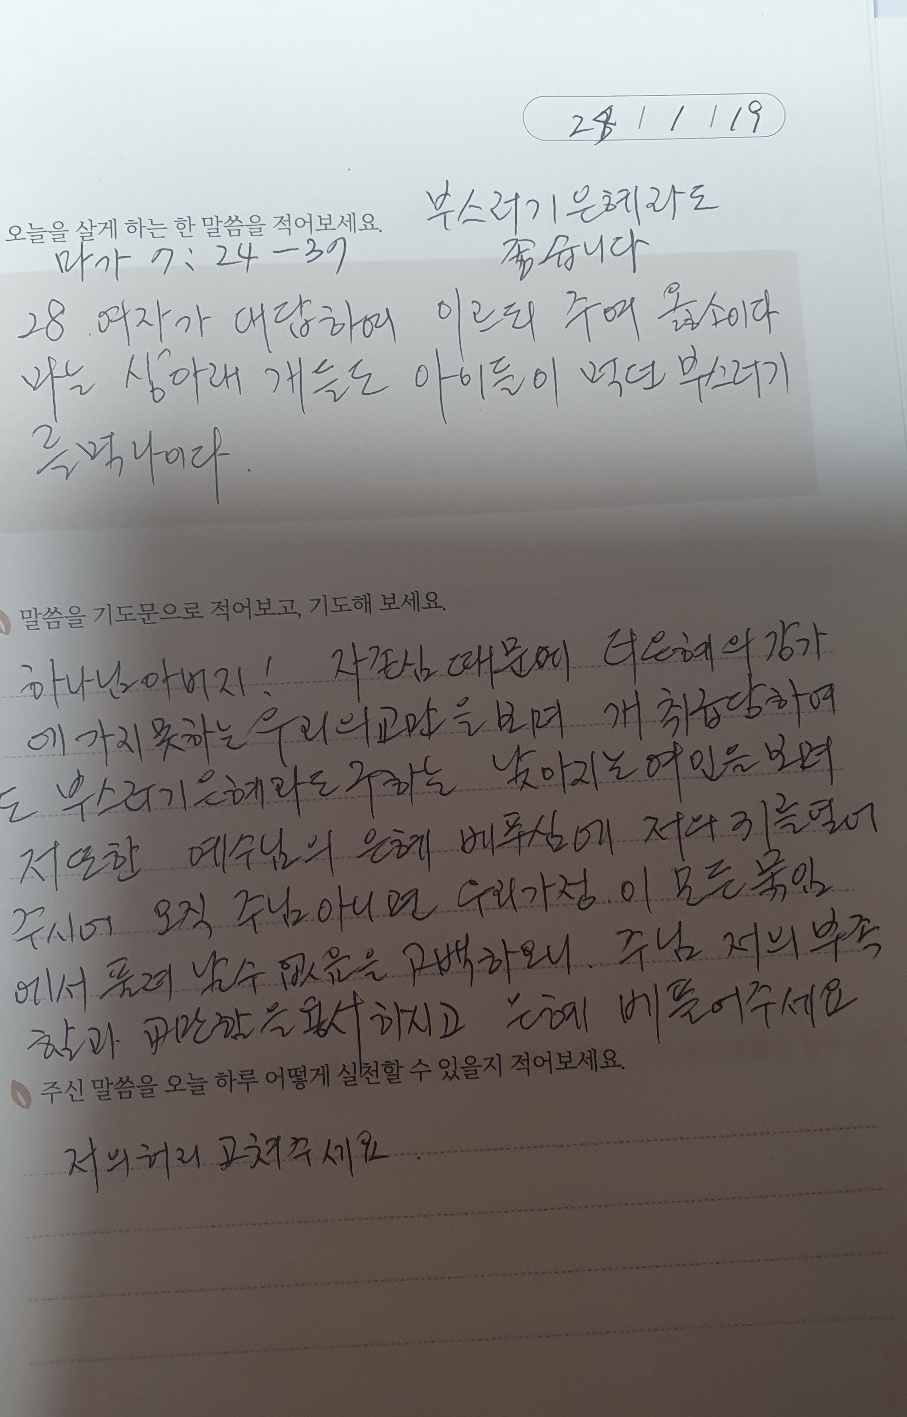 28 / 1 / 19
부스러기 은혜라도
오늘을 살게 하는 한 말씀을 적어보세요.
좋습니다
마가 7: 24 - 37
28. 여자가 대답하여 이르되 주여 옳소이다
마는 상아래 개들도 아이들이 먹던 부스러기
를 먹나이다.
말씀을 기도문으로 적어보고, 기도해 보세요.
하나님 아버지! 자존심 때문에 더 은혜의 강가
에 가지 못하는 우리의 교만을 보며 개 취급당하여
도 부스러기 은혜라도 구하는 낮아지는 여인을 보며
저 또한 예수님의 은혜 베푸심에 저의 귀를 열어
주시어 오직 주님 아니면 우리가정 이 모든 묶임
에서 풀려 날수 없음을 고백하오니. 주님 저의 부족
함과 교만함을 용서하시고 은혜 베풀어주세요
주신 말씀을 오늘 하루 어떻게 실천할 수 있을지 적어보세요.
저의 허리 고쳐주세요.